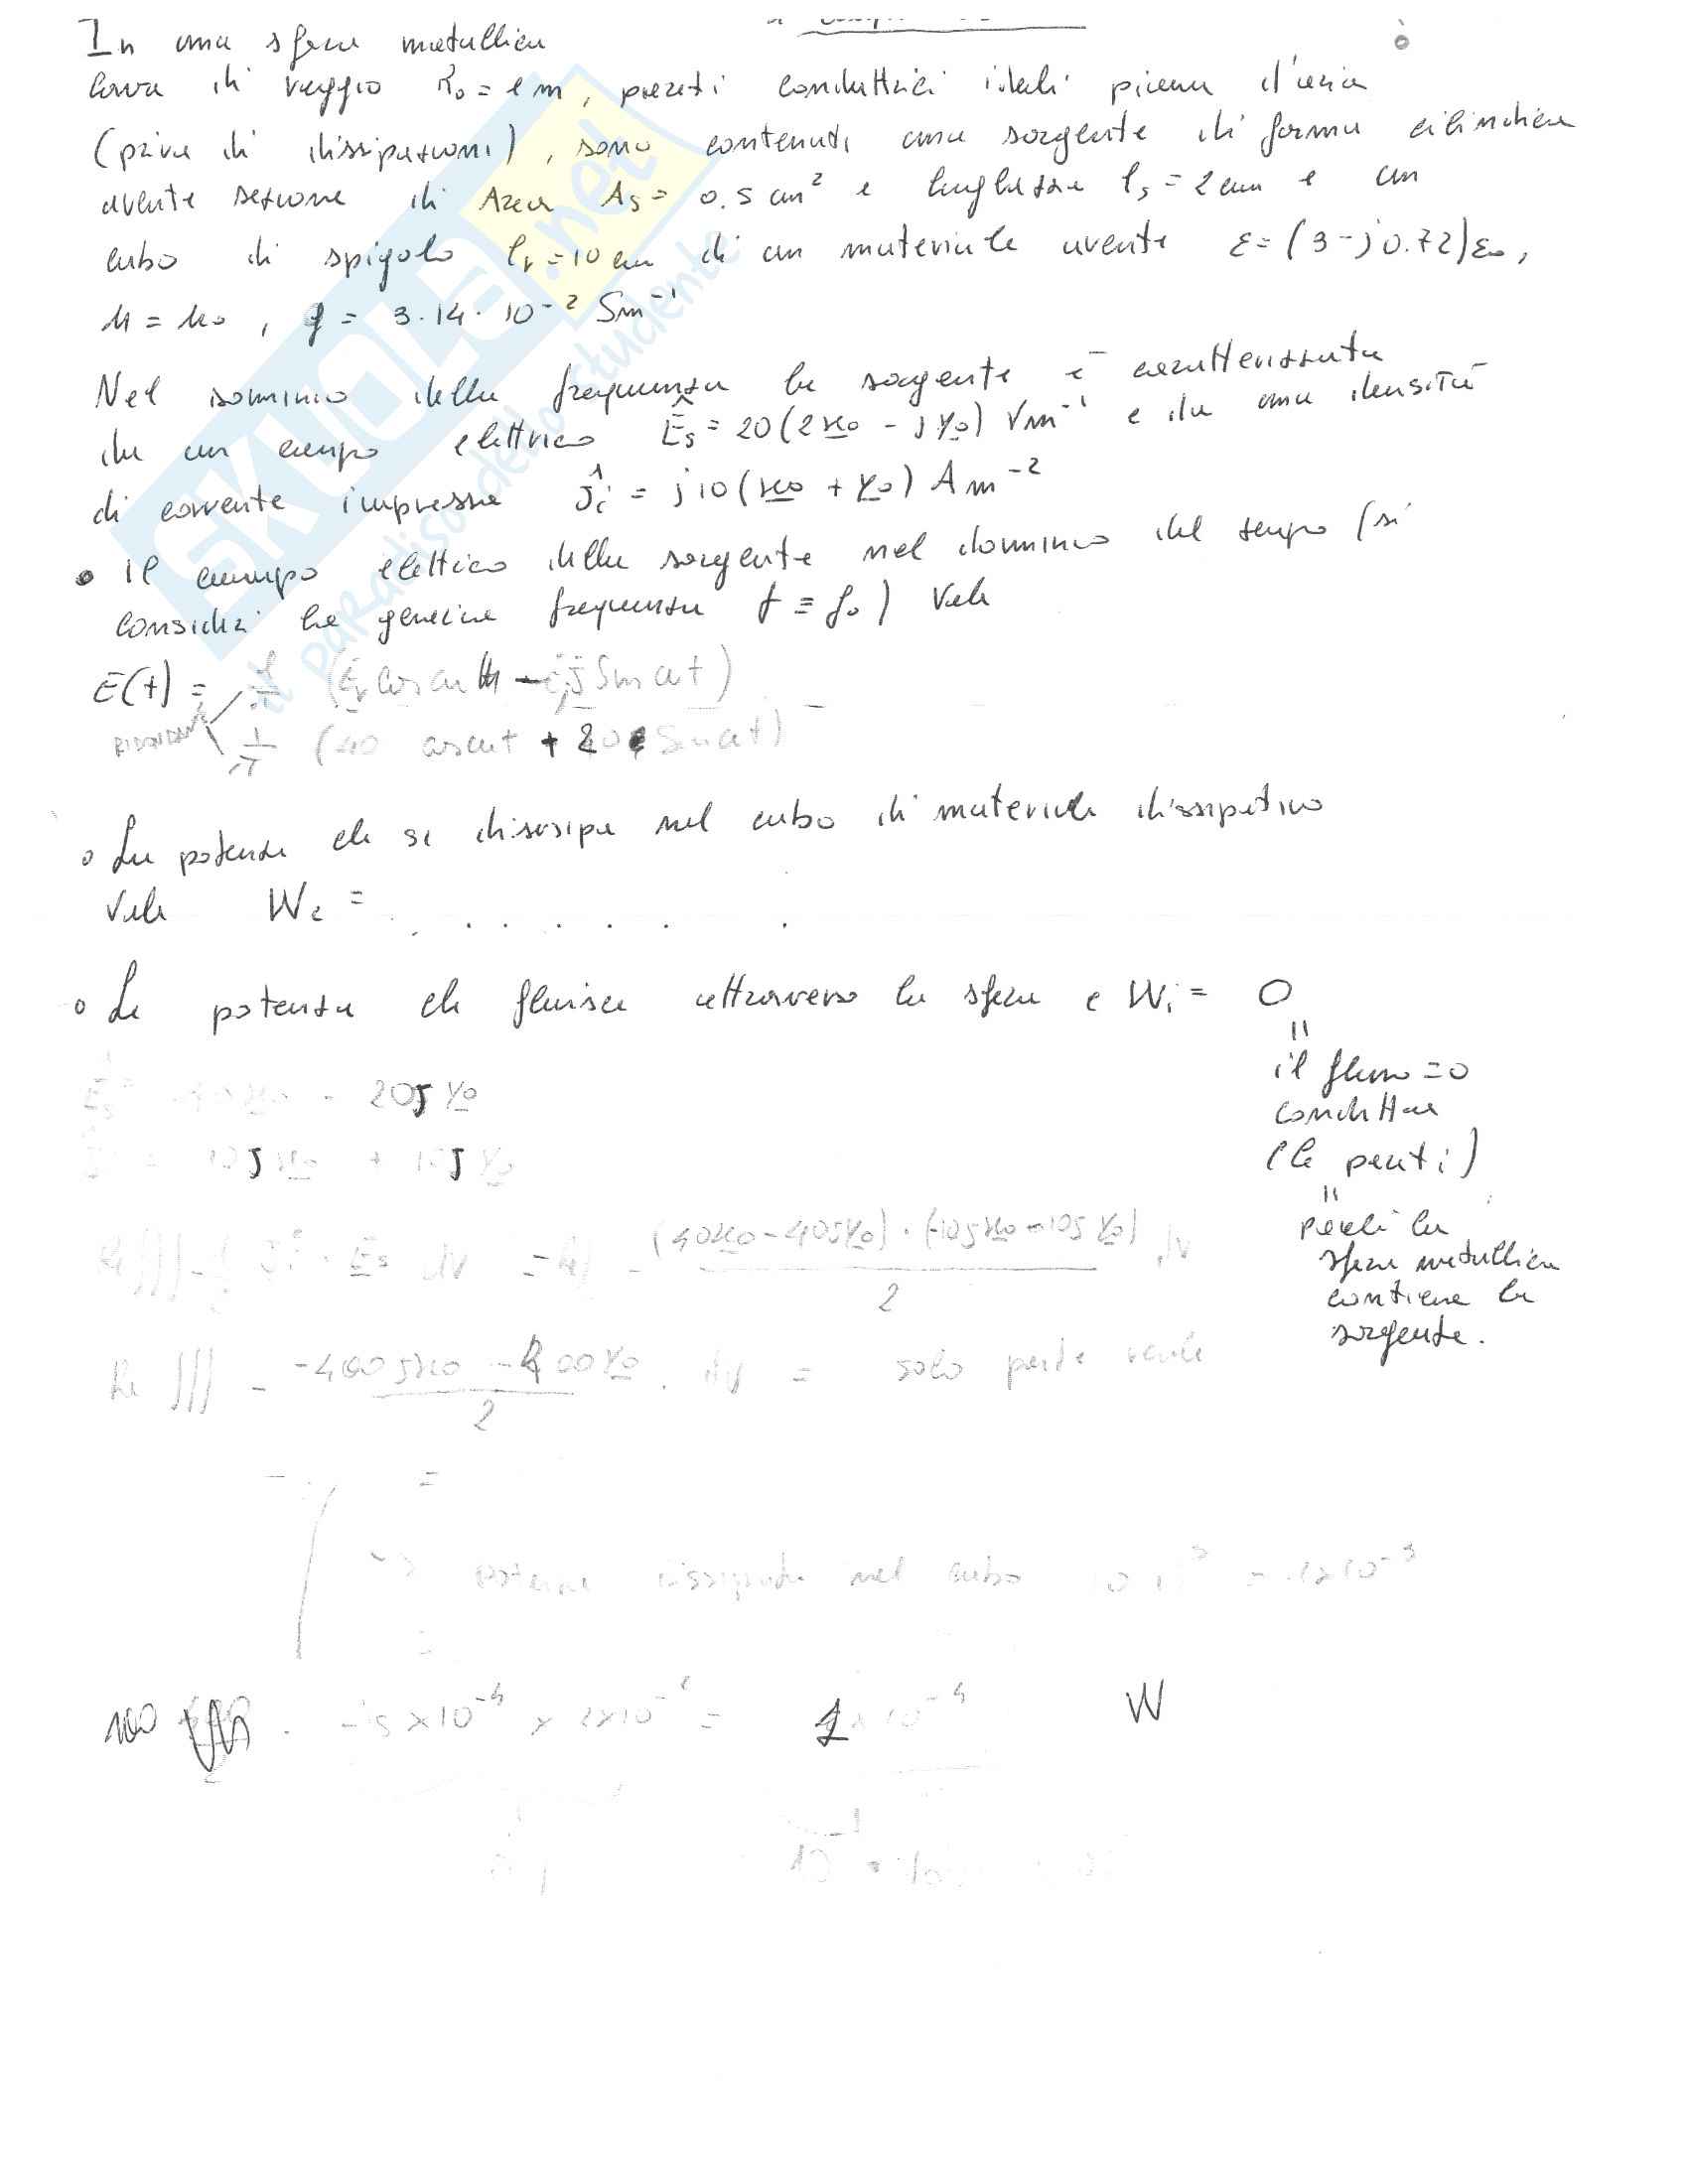 In una sfera metallica
cava di raggio R₀ = 1 m, pareti conduttrici ideali piena d'aria
(priva di dissipazioni), sono contenuti una sorgente di forma cilindrica
avente sezione di Area As = 0.5 cm² e lunghezza ls = 2 cm e un
cubo di spigolo lr = 10 cm di un materiale avente ε = (3 - j0.72)ε₀,
μ = μ₀, g = 3.14 · 10⁻² Sm⁻¹
Nel dominio della frequenza la sorgente è caratterizzata
da un campo elettrico Ês = 20(2x₀ - jy₀) Vm⁻¹ e da una densità
di corrente impressa Ĵi = j10(x₀ + y₀) Am⁻²
• Il campo elettrico della sorgente nel dominio del tempo (si
consideri la generica frequenza f = f₀) vale
E(t) =
(40 cosωt + 20 Sinωt)
o La potenza che si dissipa nel cubo di materiale dissipativo
vale Wc = . . . . . .
o La potenza che fluisce attraverso la sfera è Wi = 0
il flusso = 0
conduttore
(le pareti)
perché la
sfera metallica
contiene la
sorgente.
Es - 20j y₀
10j x₀ + 10j y₀
(40x₀ - 40jy₀) · (-10jx₀ - 10jy₀) dV
2
Re ∭ - -400jx₀ - 400y₀ · dV = solo parte reale
2
potenza dissipata nel cubo
100 · 5 × 10⁻⁴ × 2×10⁻² = 1 × 10⁻⁴ W
SKUOLA.net
il paradiso dello studente